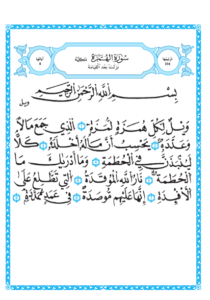 سُورَةُ الْهُمَزَةِ مَكِّيَّة
نزلت بعد القيامة
بِسْمِ اللَّهِ الرَّحْمَٰنِ الرَّحِيمِ
ويل
وَيْلٌ لِّكُلِّ هُمَزَةٍ لُّمَزَةٍ ۝ الَّذِي جَمَعَ مَالًا
وَعَدَّدَهُ ۝ يَحْسَبُ أَنَّ مَالَهُ أَخْلَدَهُ ۝ كَلَّا
لَيُنبَذَنَّ فِي الْحُطَمَةِ ۝ وَمَا أَدْرَىٰكَ مَا
الْحُطَمَةُ ۝ نَارُ اللَّهِ الْمُوقَدَةُ ۝ الَّتِي تَطَّلِعُ عَلَى
الْأَفْئِدَةِ ۝ إِنَّهَا عَلَيْهِم مُّؤْصَدَةٌ ۝ فِي عَمَدٍ مُّمَدَّدَةٍ